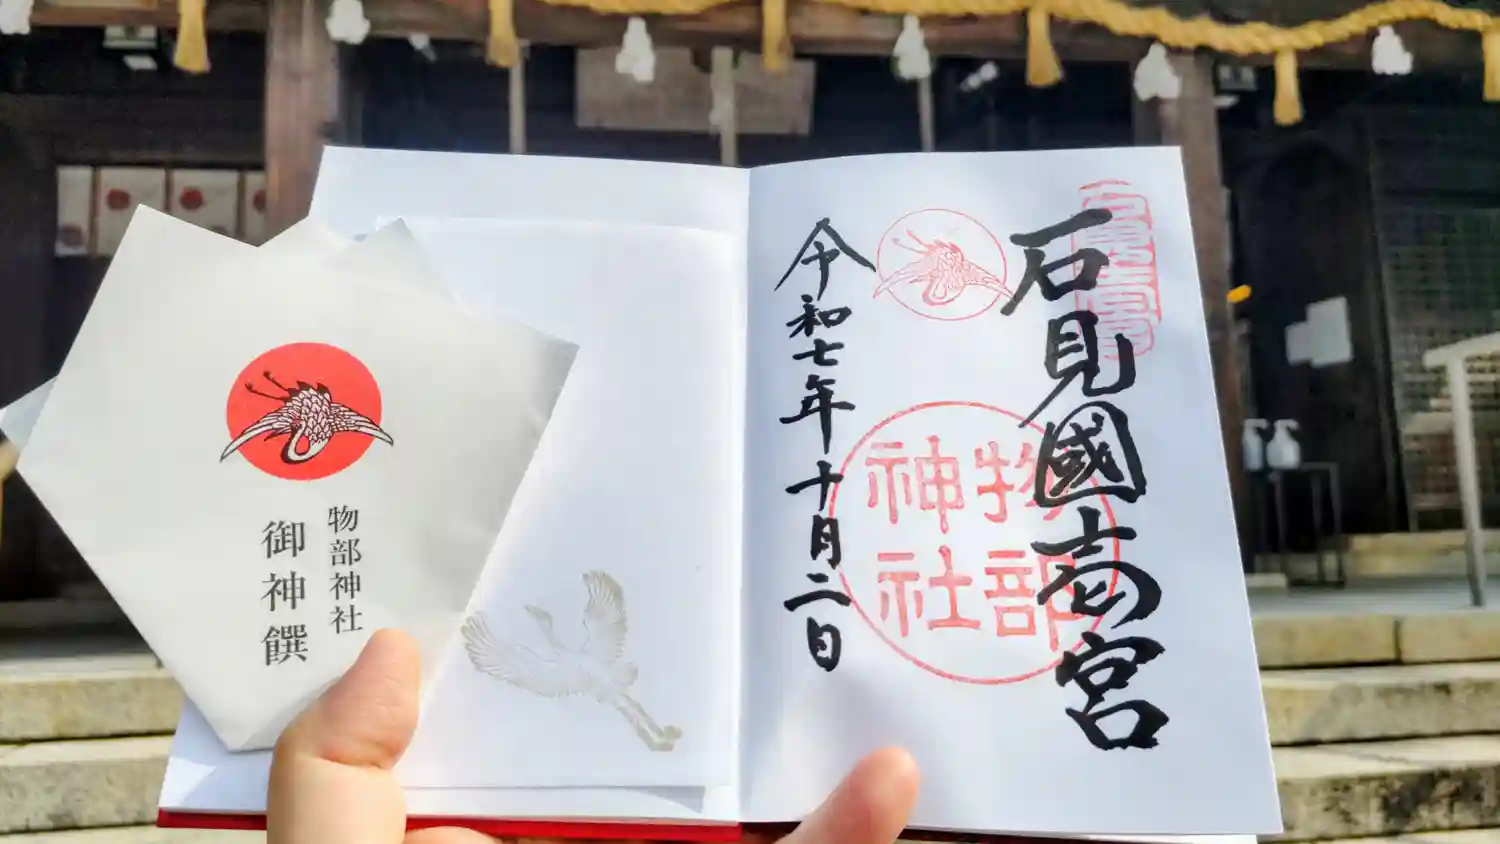 物部神社
御神饌
石見國壱宮
令和七年十月二日
物部
神社